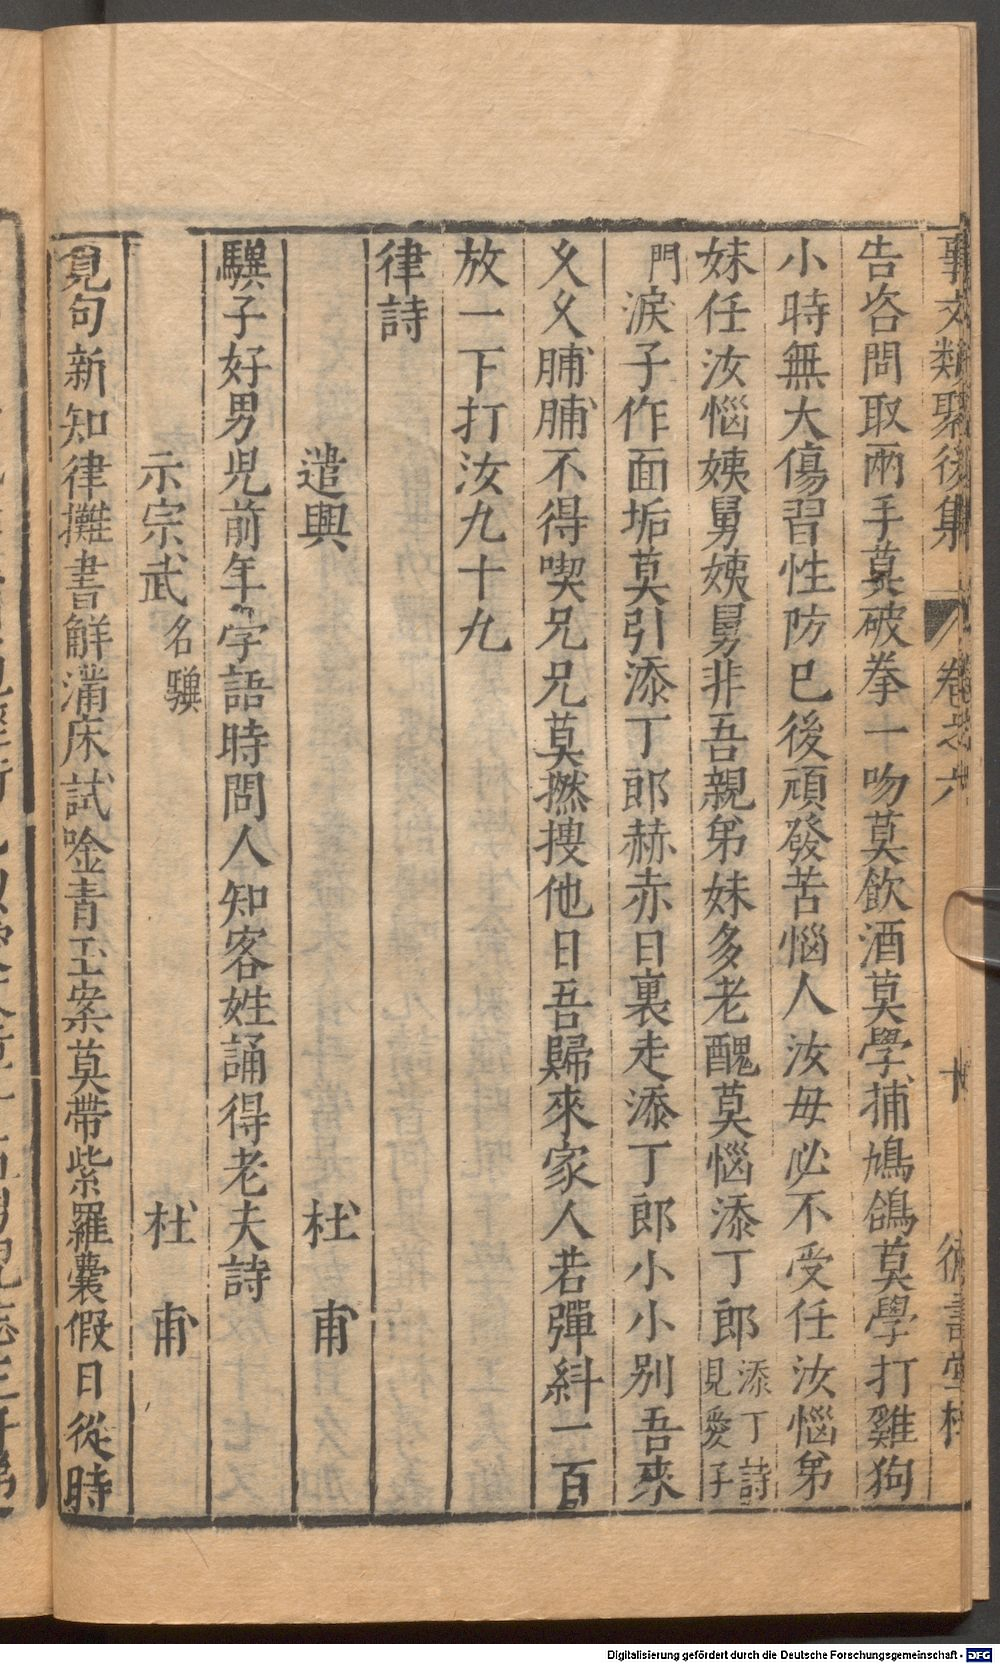 事文類聚後集 卷之六 十 德壽堂梓
告咨問取兩手莫破拳一吻莫飲酒莫學捕鳩鴿莫學打雞狗
小時無大傷習性防已後頑發苦惱人汝母必不受任汝惱弟
妹任汝惱姨舅姨舅非吾親弟妹多老醜莫惱添丁郎添丁詩見愛子
門淚子作面垢莫引添丁郎赫赤日裏走添丁郎小小別吾來
久久脯脯不得喫兄兄莫撚搜他日吾歸來家人若彈糾一百
放一下打汝九十九
律詩
遣興 杜甫
驥子好男兒前年學語時問人知客姓誦得老夫詩
示宗武名驥 杜甫
覓句新知律攤書解滿床試唫青玉案莫帶紫羅囊假日從時
Digitalisierung gefördert durch die Deutsche Forschungsgemeinschaft - DFG